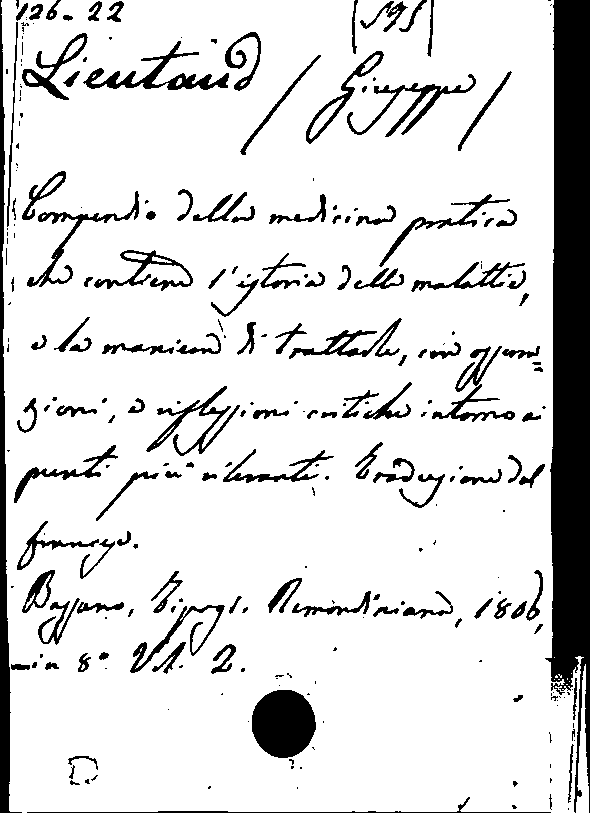 126-22 (595)
Lieutaud / Giuseppe /
Compendio della medicina pratica
che contiene l'istoria delle malattie,
e la maniera di trattarle, con osserva=
zioni, e riflessioni critiche intorno ai
punti più rilevanti. Traduzione dal
francese.
Bassano, Tipogr. Remondiniana, 1806,
in 8° Vol. 2.
D